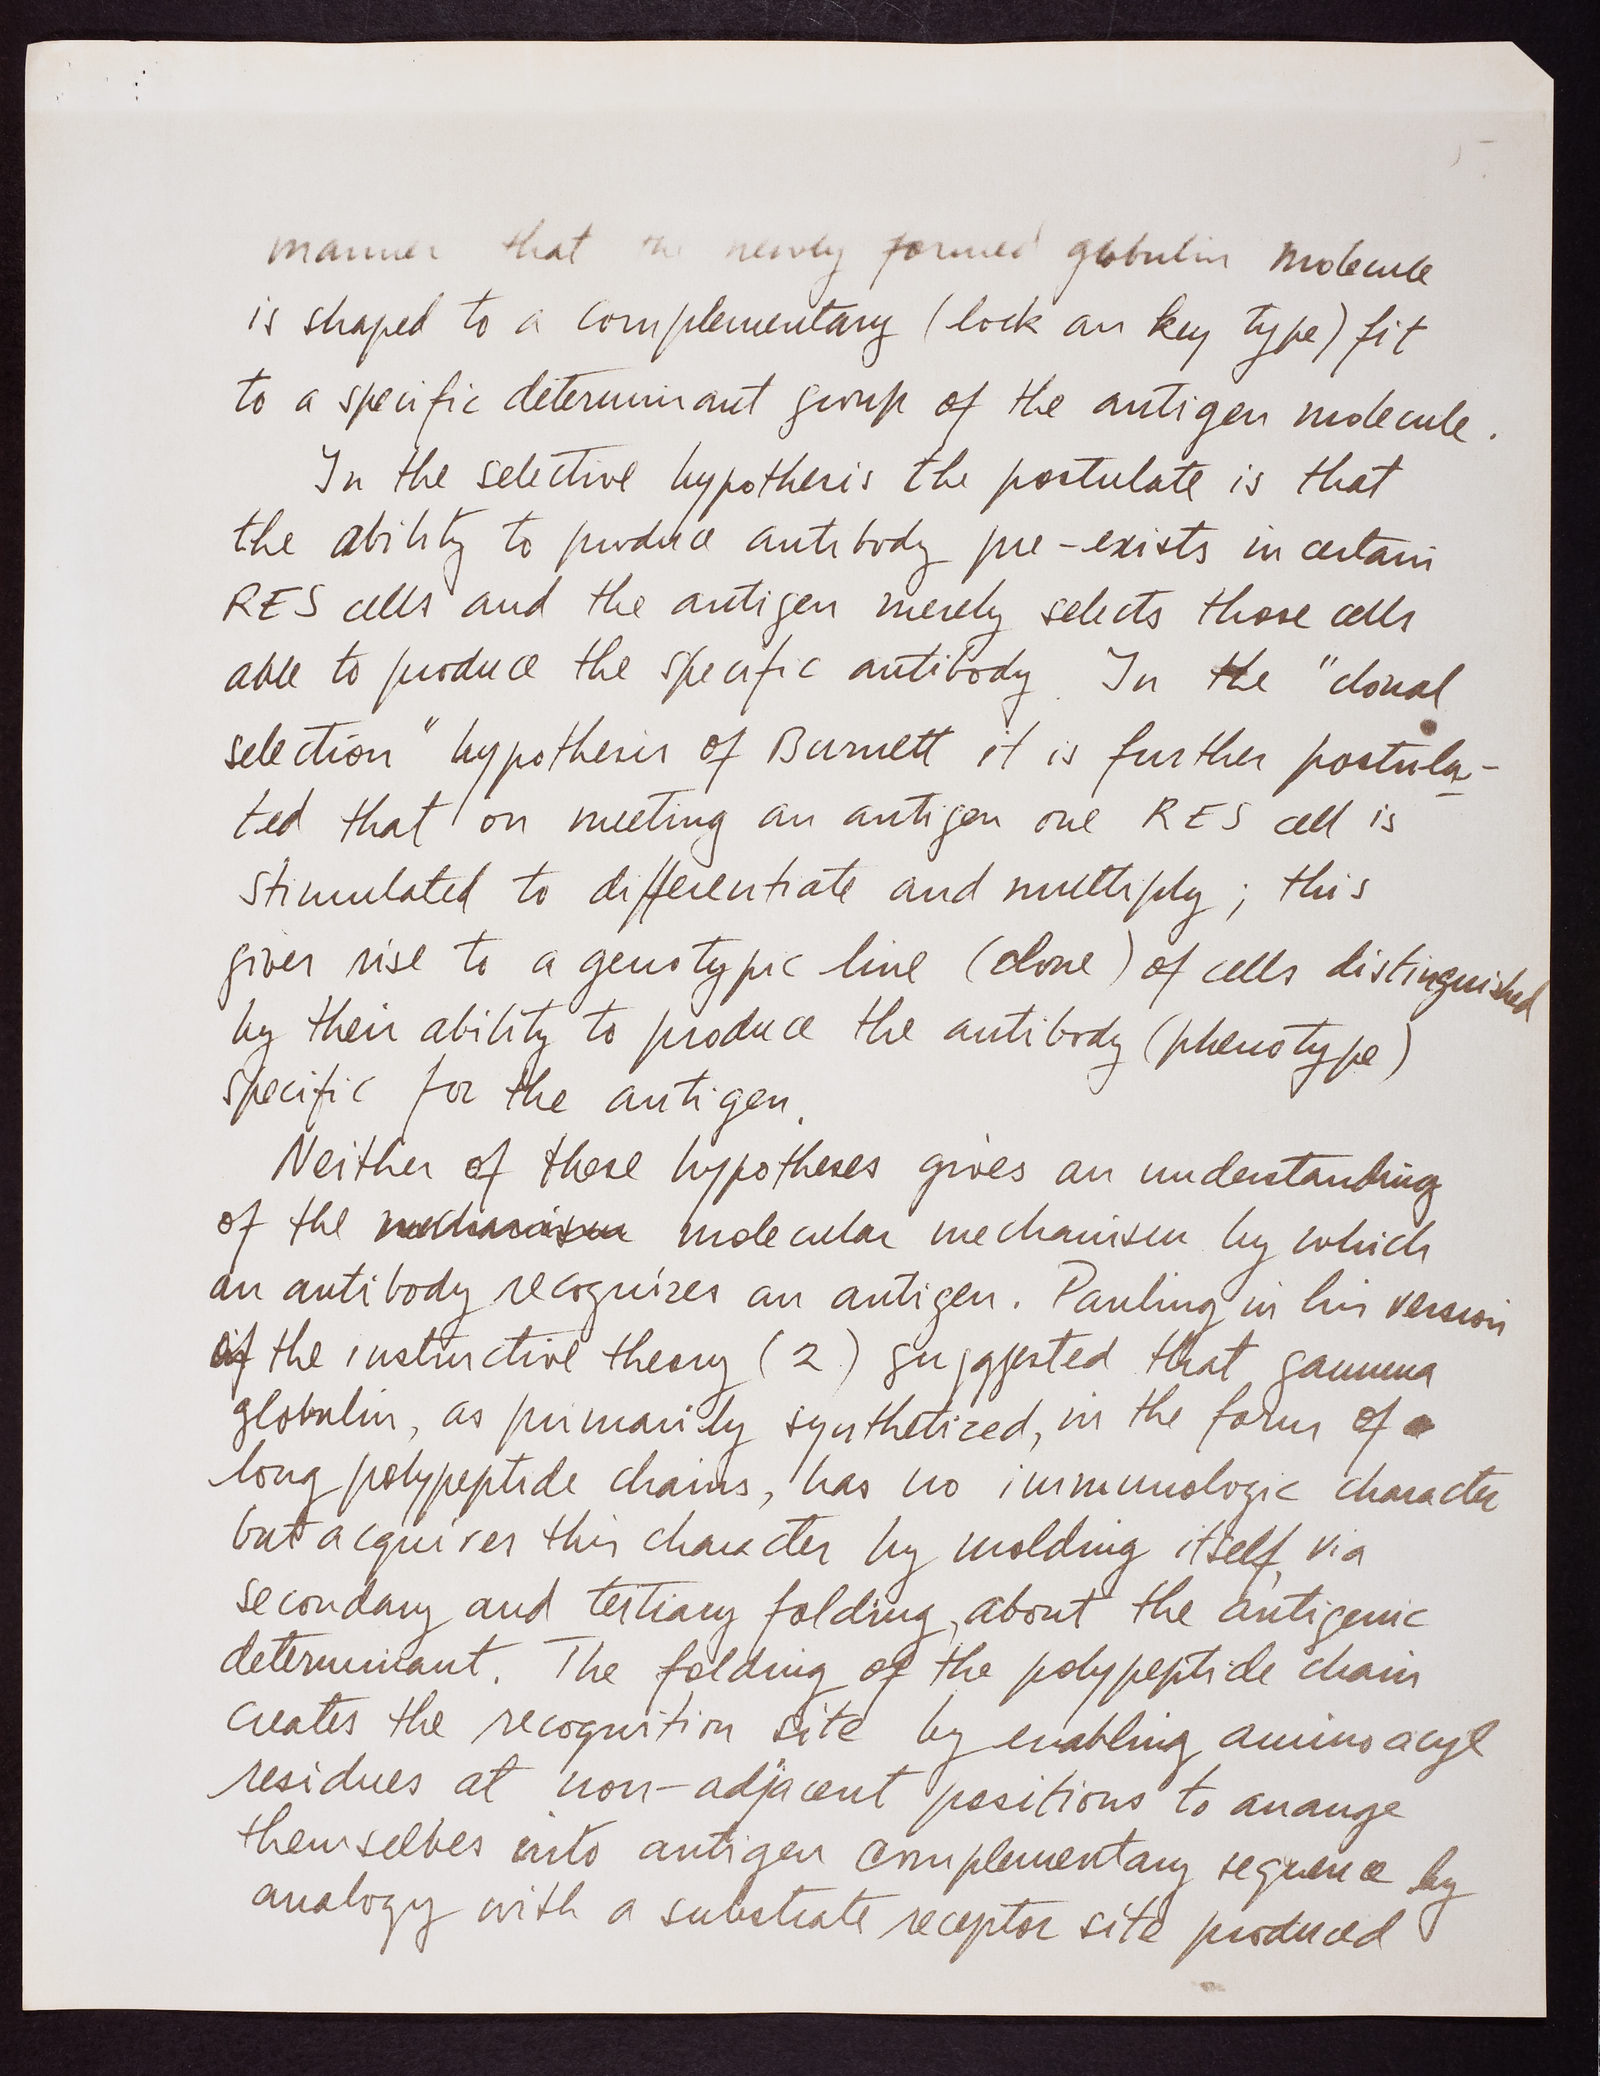 5
manner that the newly formed globulin molecule
is shaped to a complementary (lock an key type) fit
to a specific determinant group of the antigen molecule.
In the selective hypothesis the postulate is that
the ability to produce antibody pre-exists in certain
RES cells and the antigen merely selects those cells
able to produce the specific antibody. In the "clonal
selection" hypothesis of Burnett it is further postula-
ted that on meeting an antigen one RES cell is
stimulated to differentiate and multiply; this
gives rise to a genotypic line (clone) of cells distinguished
by their ability to produce the antibody (phenotype)
specific for the antigen.
Neither of these hypotheses gives an understanding
of the mechanism molecular mechanism by which
an antibody recognizes an antigen. Pauling in his version
of the instructive theory (2) suggested that gamma
globulin, as primarily synthetized, in the form of a
long polypeptide chains, has no immunologic character
but acquires this character by molding itself, via
secondary and tertiary folding, about the antigenic
determinant. The folding of the polypeptide chain
creates the recognition site by enabling aminoacyl
residues at non-adjacent positions to arrange
themselves into antigen complementary sequence by
analogy with a substrate receptor site produced